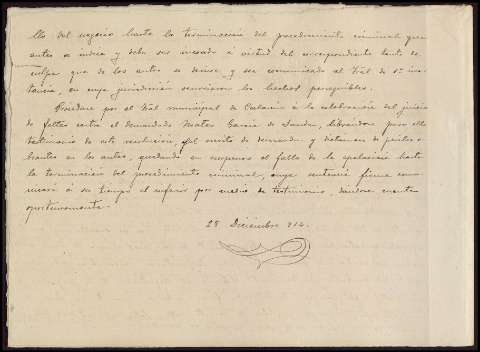 llo del negocio hasta la terminación del procedimiento criminal que
antes se indica y debe ser incoado á virtud del correspondiente tanto de
culpa que de los autos se deduce, y ser comunicado al Tral de 1ª ins-
tancia, en cuya jurisdicción ocurrieron los hechos perseguibles.
Procédase por el Tral municipal de á la celebración del juicio
de faltas contra el demandado Mateo García de , librándose para ello
testimonio de esta resolución, del escrito de demanda y dictamen de peritos o-
brantes en los autos, quedando en suspenso el fallo de la apelación hasta
la terminación del procedimiento criminal, cuya sentencia firme comu-
nicará á su tiempo el inferior por medio de testimonio, dándose cuenta
oportunamente.
28 Diciembre 914.